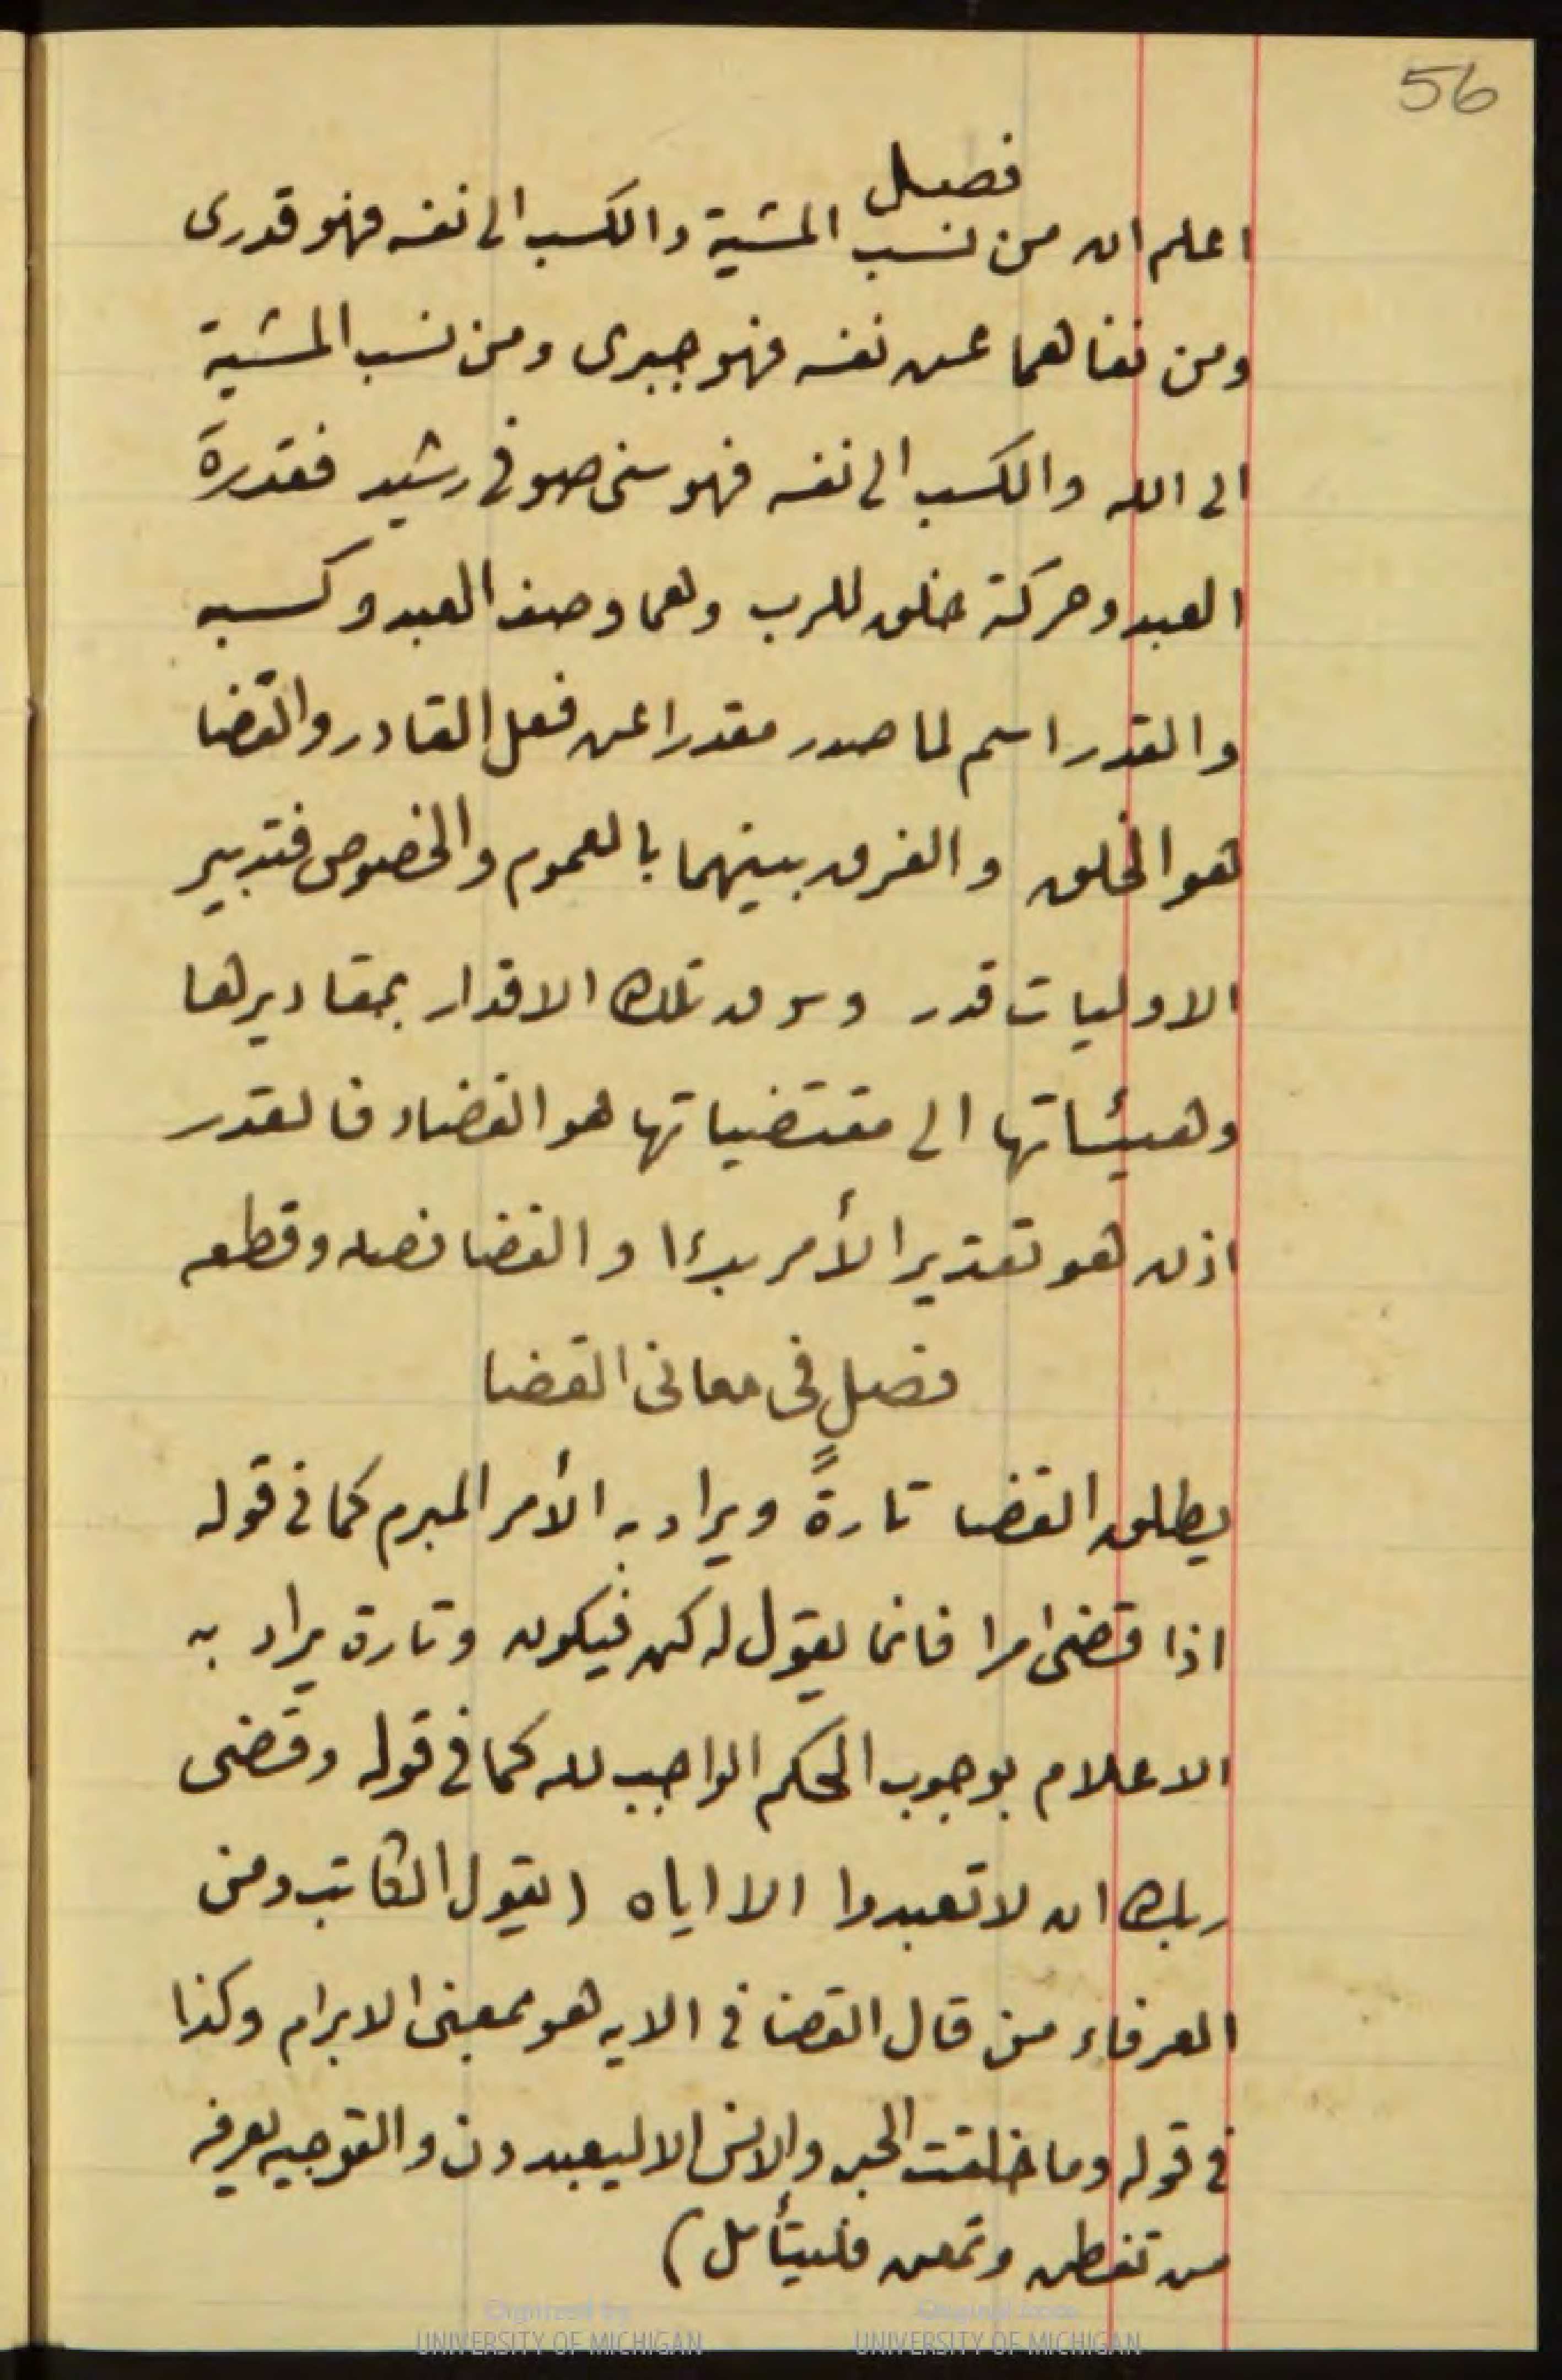 56
فصل
اعلم ان من نسب المشية والكسب الى نفسه فهو قدرى
ومن نفاهما عن نفسه فهو جبرى ومن نسب المشية
الى الله والكسب الى نفسه فهو سنى صوفى رشيد فقدرة
العبد وحركته خلق للرب وهما وصف العبد وكسبه
والقدر اسم لما صدر مقدرا عن فعل القادر والقضا
هو الخلق والفرق بينهما بالعموم والخصوص فتدبير
الاوليات قدر وسوق تلك الاقدار بمقاديرها
وهيئاتها الى مقتضياتها هو القضاء فالقدر
اذن هو تقدير الأمر بدءا والقضا فصله وقطعه
فصل فى معانى القضا
يطلق القضا تارةً ويراد به الأمر المبرم كما فى قوله
اذا قضى امرا فانما يقول له كن فيكون وتارة يراد به
الاعلام بوجوب الحكم الواجب لله كما فى قوله وقضى
ربك ان لا تعبدوا الا اياه (يقول الكاتب ومن
العرفاء من قال القضا فى الايه هو بمعنى الابرام وكذا
فى قوله وما خلقت الجن والانس الا ليعبدون والتوجيه يعرفه
من تفطن وتمعن فليتأمل)
Digitized by
UNIVERSITY OF MICHIGAN
Original from
UNIVERSITY OF MICHIGAN